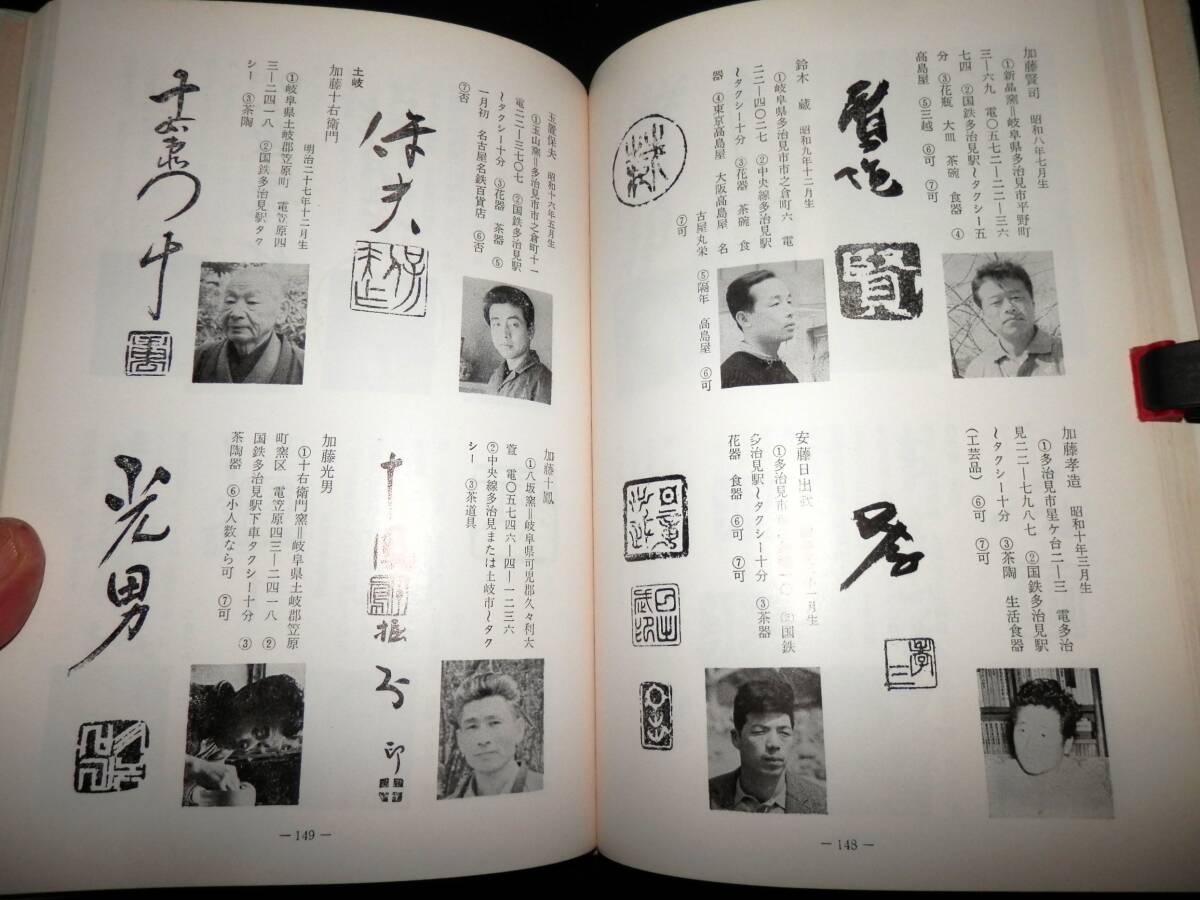 加藤賢司 昭和八年七月生
①新晶窯＝岐阜県多治見市平野町
三ー六九 電〇五七二ー二二ー三六
七四 ②国鉄多治見駅〜タクシー五
分 ③花瓶 大皿 茶碗 食器 ④
高島屋 ⑤三越 ⑥可 ⑦可
賢
鈴木 蔵 昭和九年十二月生
①岐阜県多治見市市之倉町六 電
二二ー四〇二七 ②中央線多治見駅
〜タクシー十分 ③花器 茶碗 食
器 ④東京高島屋 大阪高島屋 名
古屋丸栄 ⑤隔年 高島屋 ⑥可
⑦可
加藤孝造 昭和十年三月生
①多治見市星ケ台二ー三 電多治
見二二ー七九八七 ②国鉄多治見駅
〜タクシー十分 ③茶陶 生活食器
(工芸品) ⑥可 ⑦可
孝
安藤日出武
①多治見市
多治見駅〜タクシー十分 ③茶器
花器 食器 ⑥可 ⑦可
ー148ー
玉置保夫 昭和十六年五月生
①玉山窯＝多治見市市之倉町十一
電二二ー三七〇七 ②国鉄多治見駅
〜タクシー十分 ③花器 茶器 ⑤
一月初 名古屋名鉄百貨店 ⑥否
⑦否
保夫
土岐
加藤十右衛門
明治二十七年十二月生
①岐阜県土岐郡笠原町 電笠原四
三ー二四一八 ②国鉄多治見駅タク
シー ③茶陶
加藤十鳳
①八坂窯＝岐阜県可児郡久々利大
萱 電〇五七四六ー四ー一二三六
②中央線多治見または土岐市〜タク
シー ③茶道具
加藤光男
①十右衛門窯＝岐阜県土岐郡笠原
町窯区 電笠原四三ー二四一八 ②
国鉄多治見駅下車タクシー十分 ③
茶陶器 ⑥小人数なら可 ⑦可
光男
ー149ー